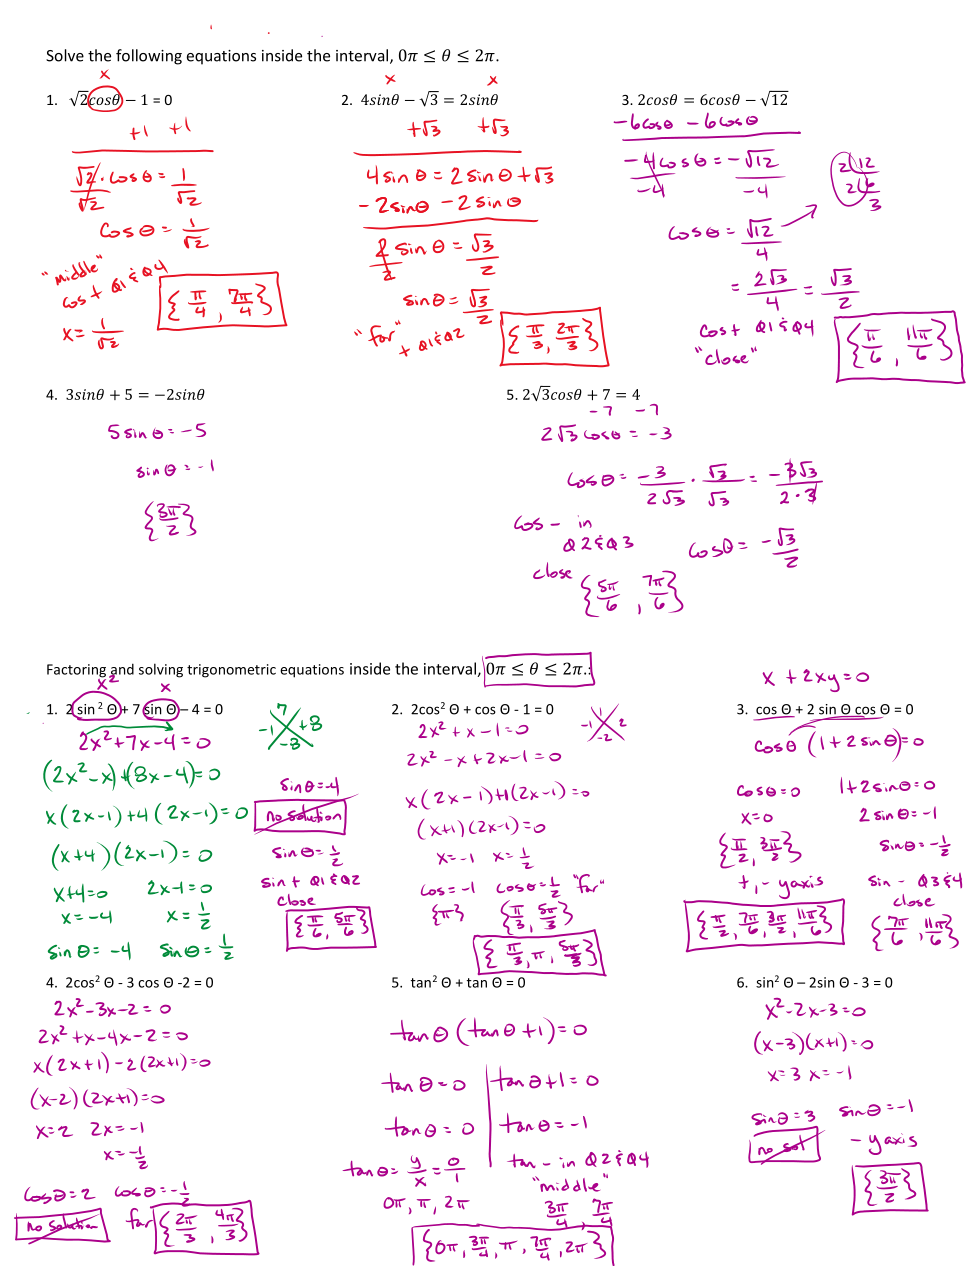 Solve the following equations inside the interval, 0π ≤ θ ≤ 2π.
x
1. √2cosθ − 1 = 0
+1 +1
√2 · cos θ = 1
√2 √2
cos θ = 1/√2
"middle"
cos + Q1 & Q4
x = 1/√2
{π/4, 7π/4}
x x
2. 4sinθ − √3 = 2sinθ
+√3 +√3
4 sin θ = 2 sin θ + √3
- 2sinθ - 2 sin θ
2 sin θ = √3
2 2
sin θ = √3/2
"far"
+ Q1 & Q2
{π/3, 2π/3}
3. 2cosθ = 6cosθ − √12
-6cosθ - 6cosθ
-4cosθ = -√12
-4 -4
2 12
2 6
3
cosθ = √12/4
= 2√3/4 = √3/2
cos + Q1 & Q4
"close"
{π/6, 11π/6}
4. 3sinθ + 5 = −2sinθ
5 sin θ = -5
sin θ = -1
{3π/2}
5. 2√3cosθ + 7 = 4
-7 -7
2√3 cosθ = -3
cos θ = -3/2√3 · √3/√3 = -3√3/2·3
cos - in
Q2 & Q3
cosθ = -√3/2
close
{5π/6, 7π/6}
Factoring and solving trigonometric equations inside the interval, 0π ≤ θ ≤ 2π.:
x² x
1. 2 sin ² Θ + 7 sin Θ – 4 = 0
2x² + 7x - 4 = 0
7
-1 +8
-8
(2x² - x) + (8x - 4) = 0
x(2x-1) + 4(2x-1) = 0
(x+4)(2x-1) = 0
x+4=0 2x-1=0
x = -4 x = 1/2
sin θ = -4 sin θ = 1/2
sinθ = -4
no solution
sin θ = 1/2
sin + Q1 & Q2
close
{π/6, 5π/6}
2. 2cos² Θ + cos Θ - 1 = 0
2x² + x - 1 = 0
1
-1 2
-2
2x² - x + 2x - 1 = 0
x(2x-1) + 1(2x-1) = 0
(x+1)(2x-1) = 0
x = -1 x = 1/2
cos = -1 cosθ = 1/2 "far"
{π} {π/3, 5π/3}
{π/3, π, 5π/3}
x + 2xy = 0
3. cos Θ + 2 sin Θ cos Θ = 0
cosθ (1 + 2 sin θ) = 0
cosθ = 0 1 + 2sinθ = 0
x = 0 2 sin θ = -1
{π/2, 3π/2} sinθ = -1/2
+, - y axis sin - Q3 & 4
close
{π/2, 7π/6, 3π/2, 11π/6} {7π/6, 11π/6}
4. 2cos² Θ - 3 cos Θ -2 = 0
2x² - 3x - 2 = 0
2x² + x - 4x - 2 = 0
x(2x+1) - 2(2x+1) = 0
(x-2)(2x+1) = 0
x = 2 2x = -1
x = -1/2
cosθ = 2 cosθ = -1/2
no solution far {2π/3, 4π/3}
5. tan² Θ + tan Θ = 0
tan θ (tan θ + 1) = 0
tan θ = 0 tan θ + 1 = 0
tan θ = 0 tan θ = -1
tan θ = y/x = 0/1 tan - in Q2 & Q4
0π, π, 2π "middle"
3π/4, 7π/4
{0π, 3π/4, π, 7π/4, 2π}
6. sin² Θ – 2sin Θ - 3 = 0
x² - 2x - 3 = 0
(x-3)(x+1) = 0
x = 3 x = -1
sinθ = 3 sinθ = -1
no sol - y axis
{3π/2}